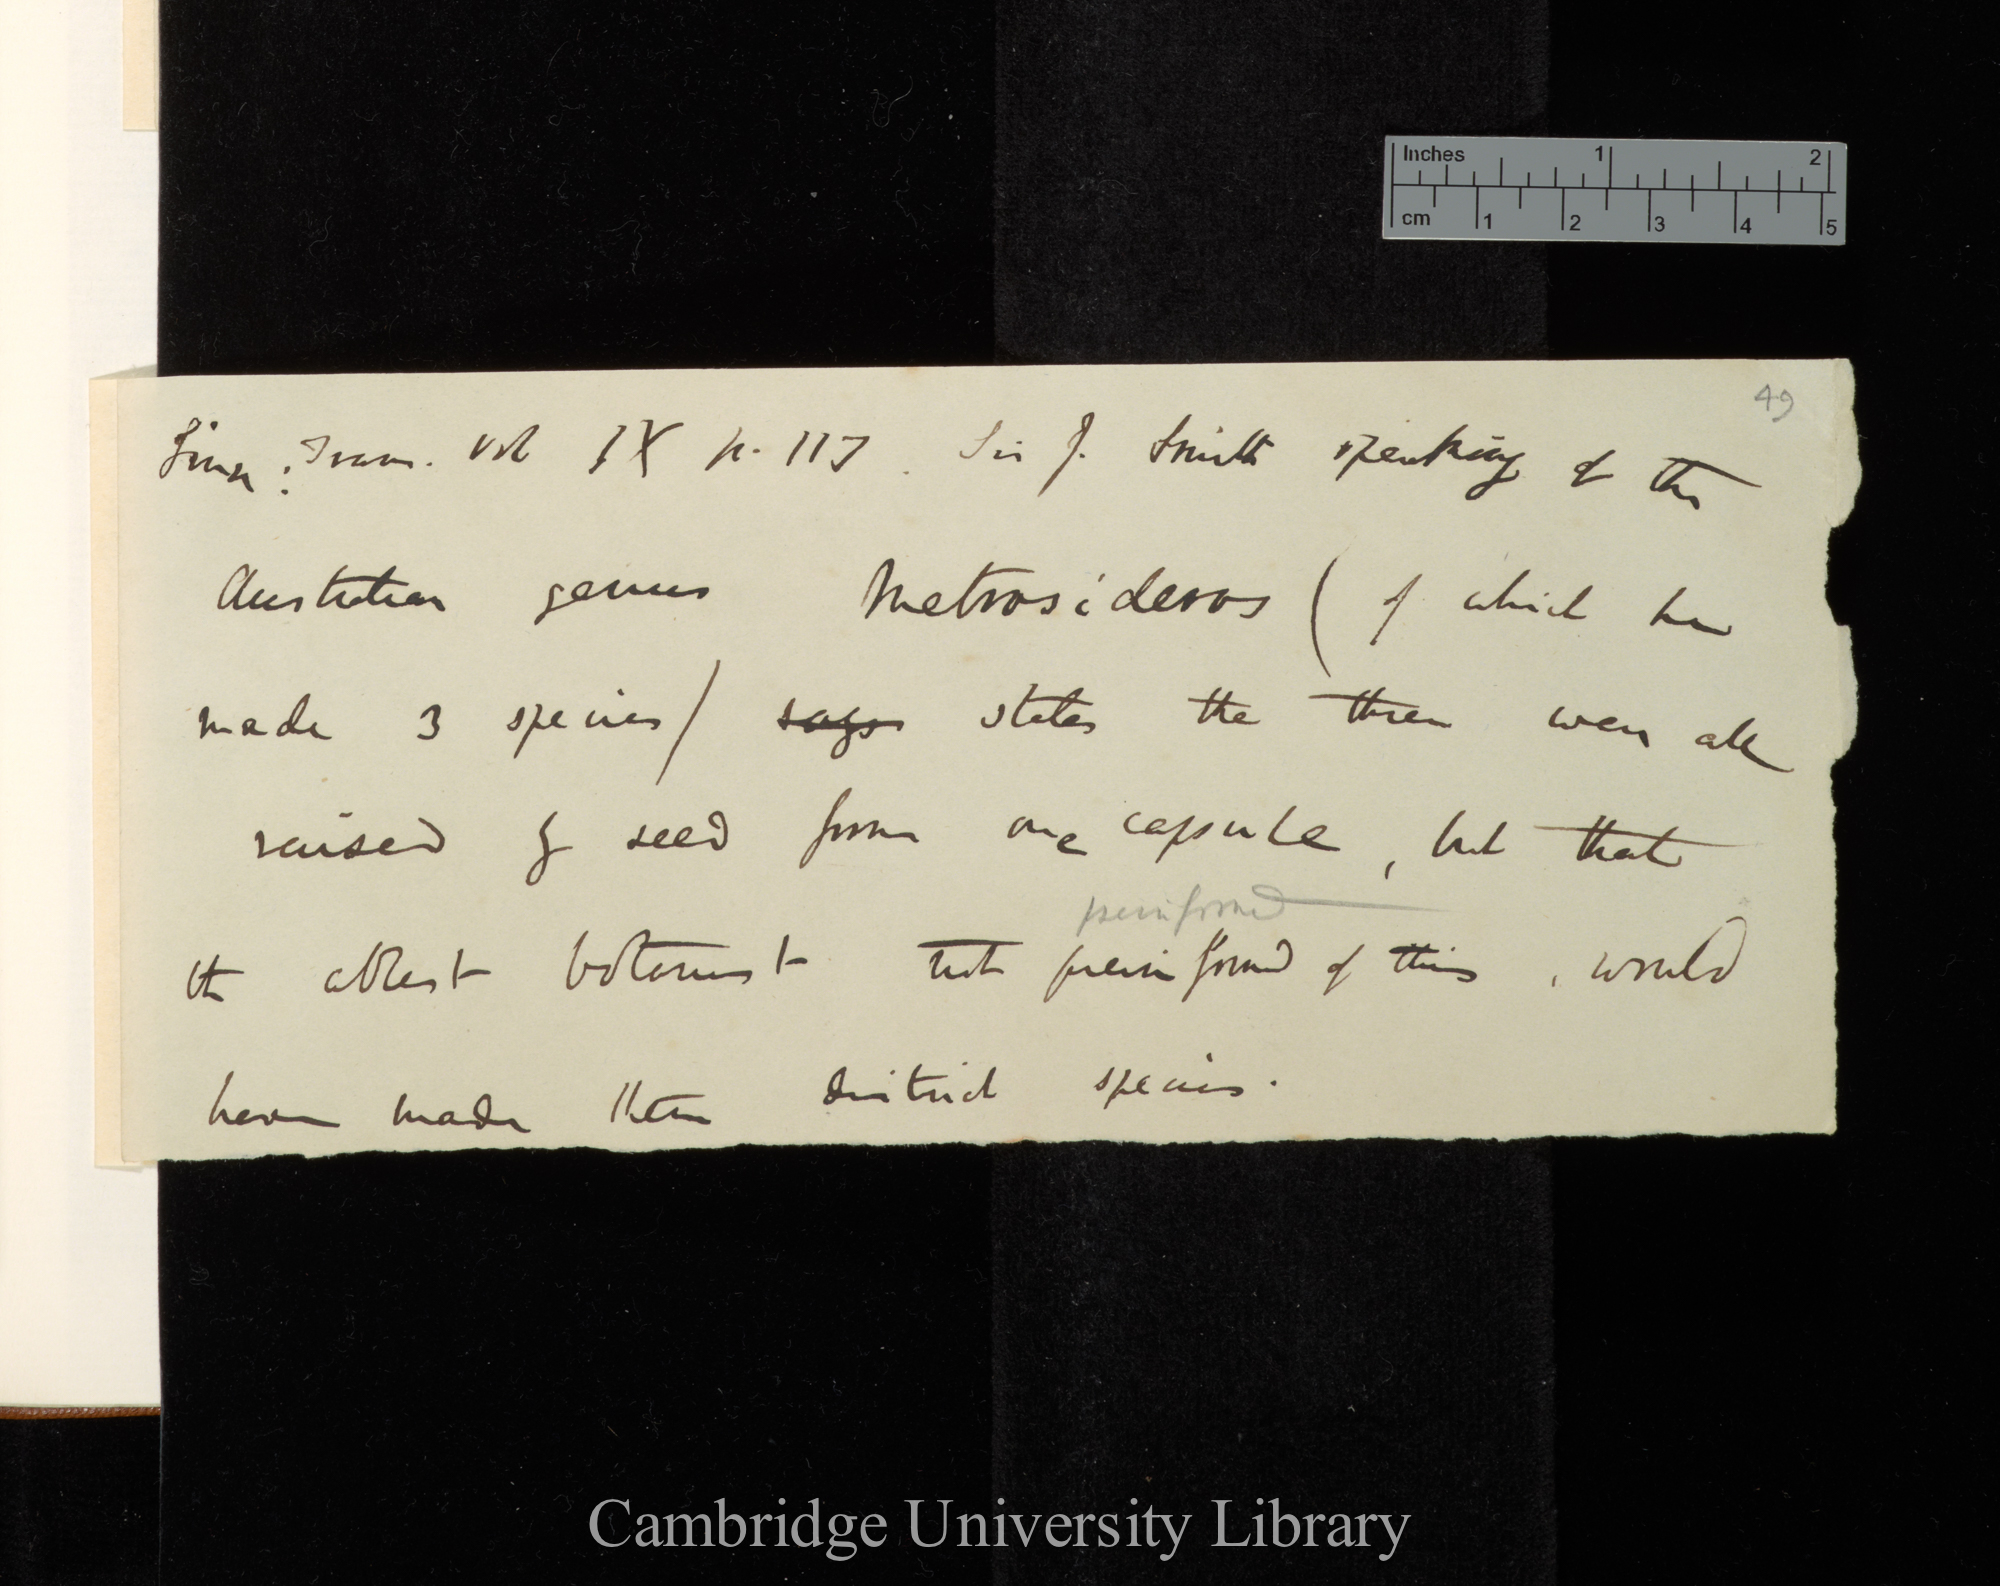 49
Linn: Trans. Vol IX p. 117. Sir J. Smith speaking of the
Australian genus Metrosideros (of which he
made 3 species) says states the three were all
raised by seed from one capsule, but that
preinformed
the ablest botanist not preinformed of this, would
have made them distinct species.
Inches 1 2
cm 1 2 3 4 5
Cambridge University Library